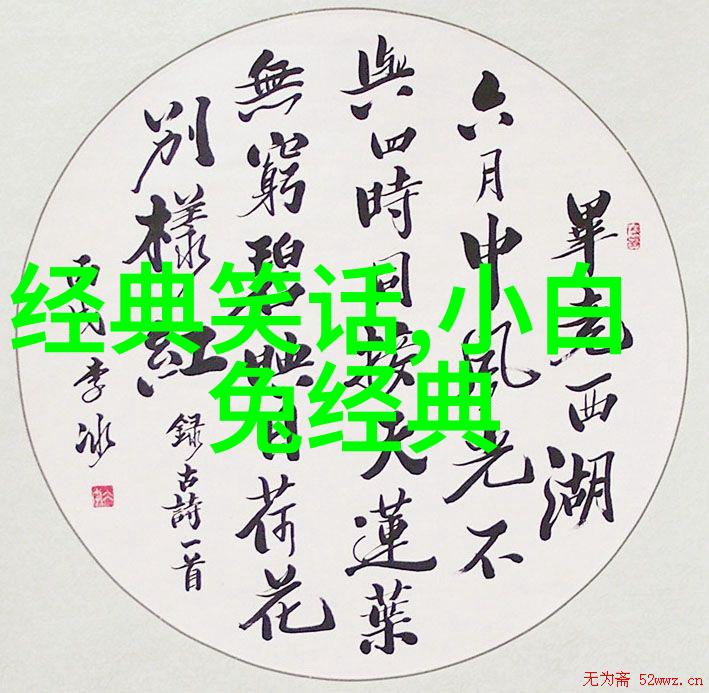 畢竟西湖
六月中風光不
與四時同接天蓮葉
無窮碧映日荷花
別樣紅
錄古詩一首
李冰
经典笑话,小白
兔经典
无为斋 52wwz.cn